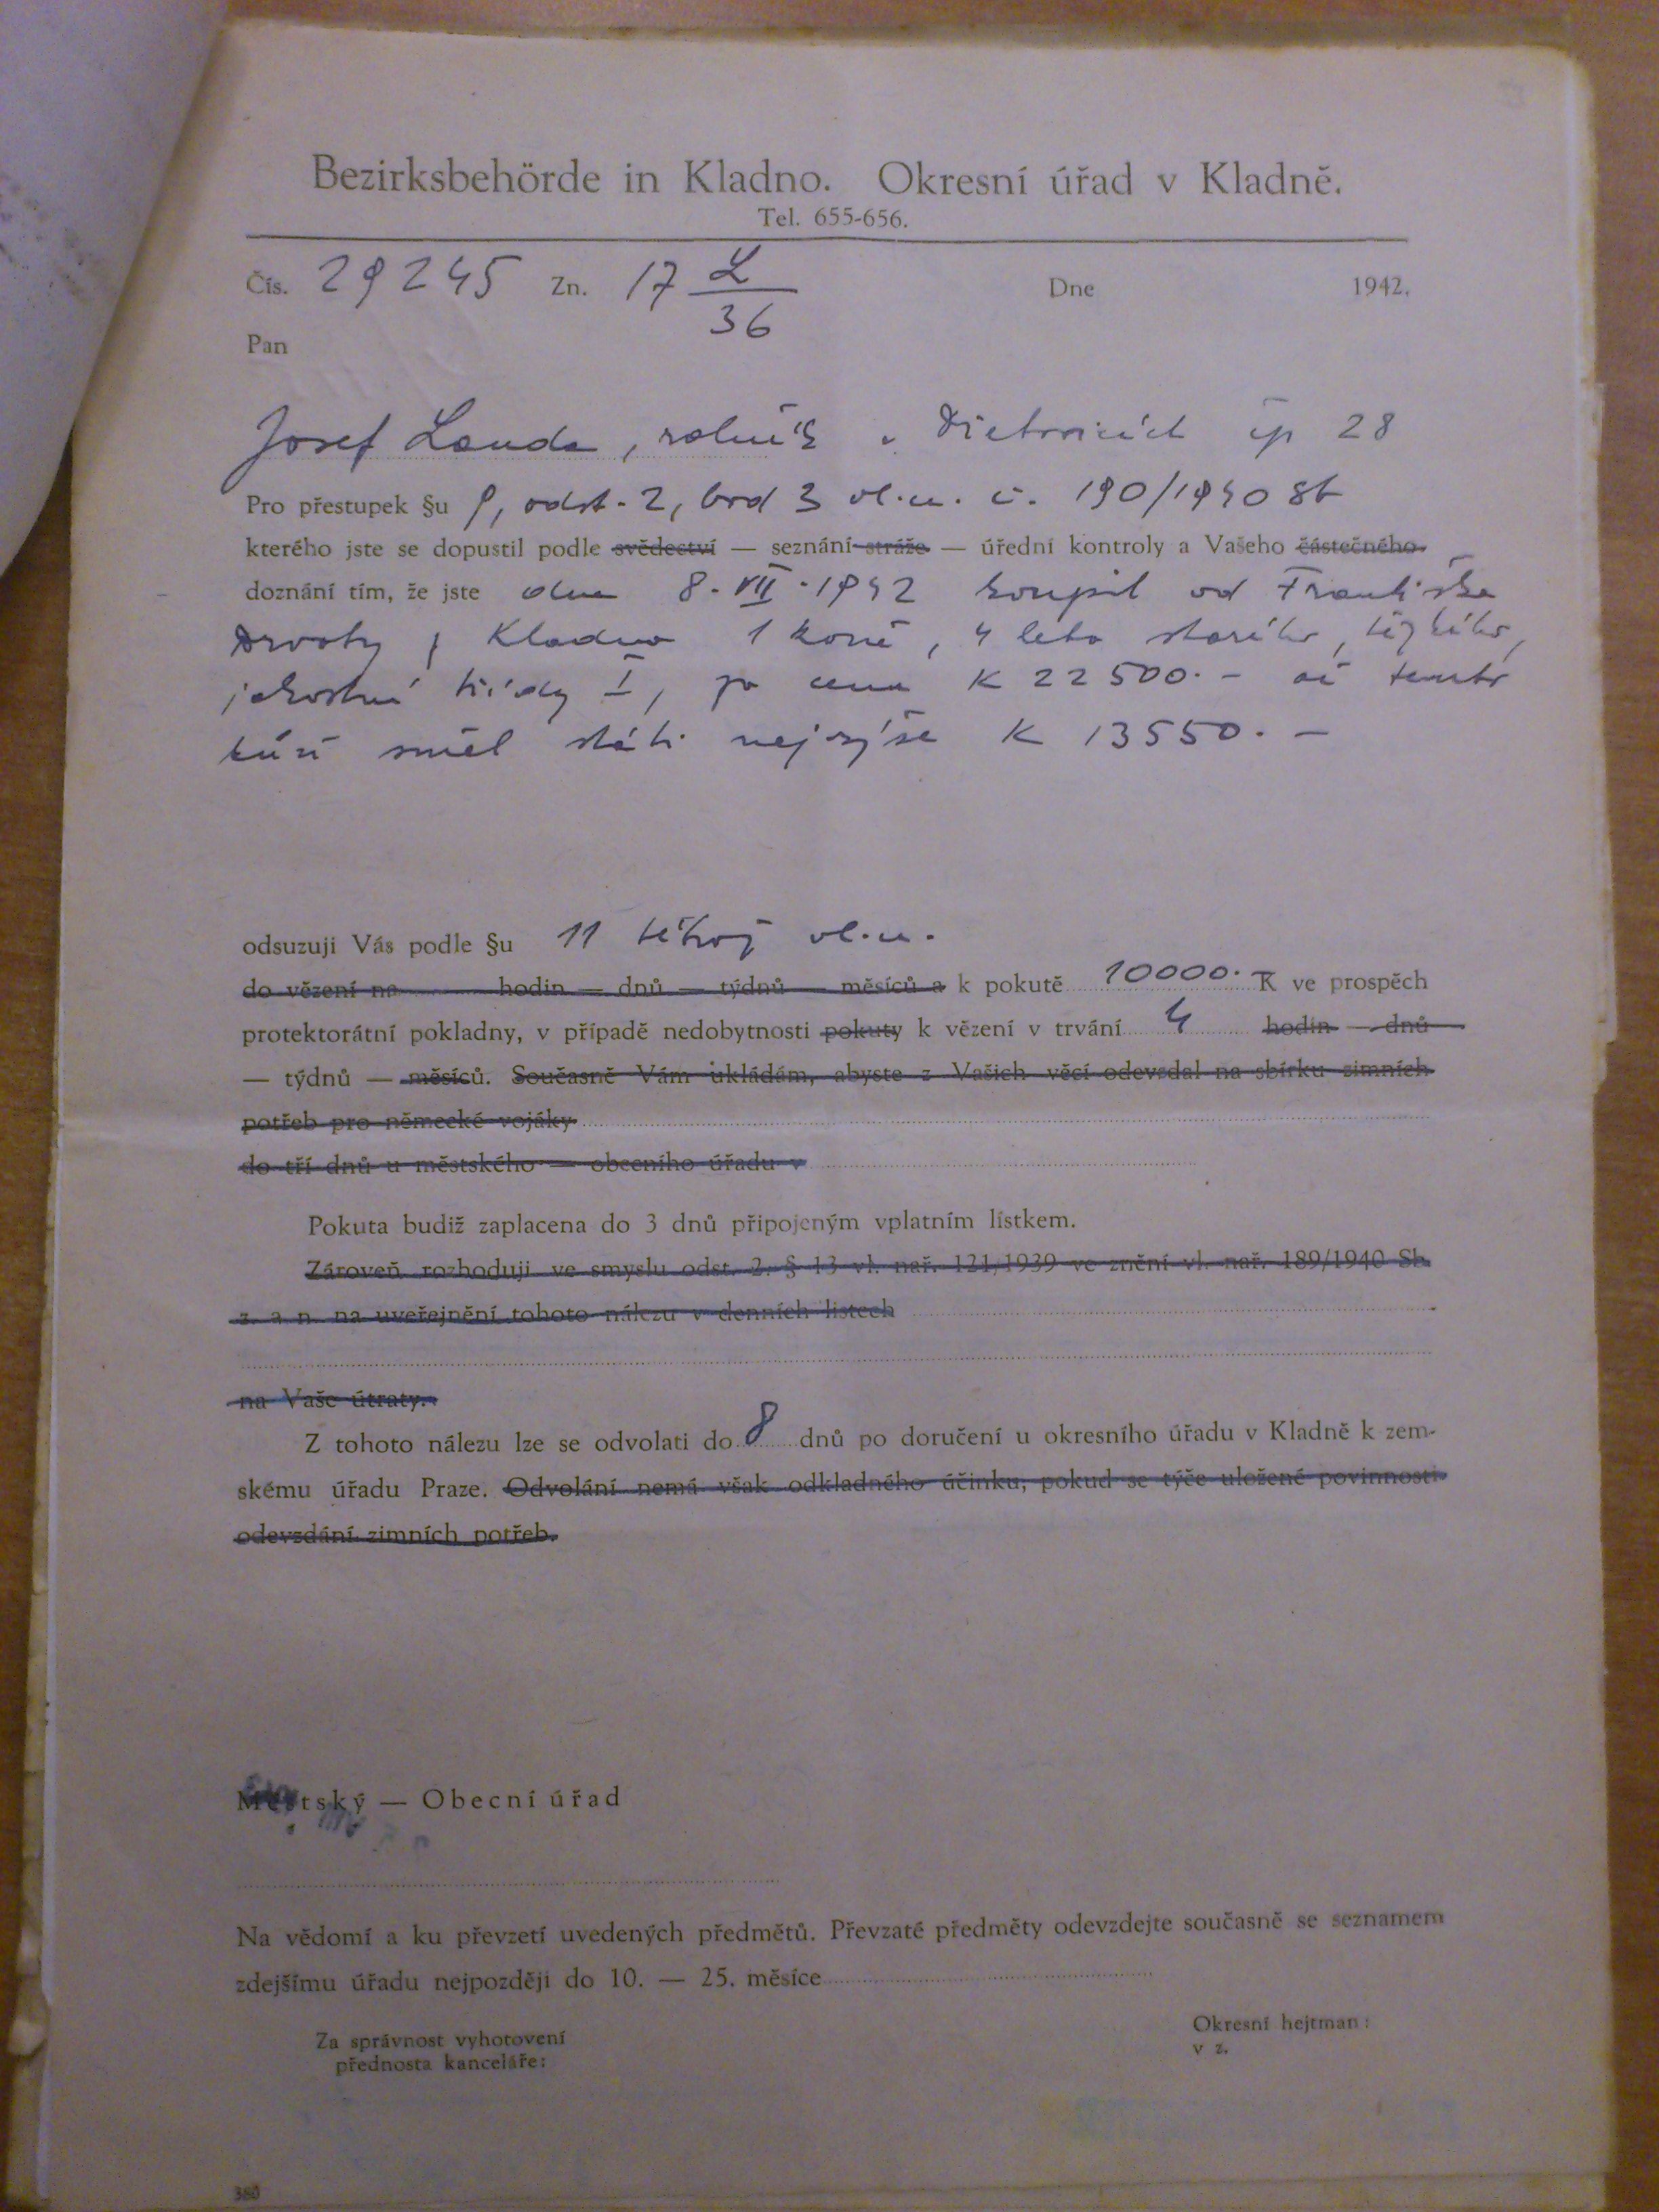 Bezirksbehörde in Kladno. Okresní úřad v Kladně.
Tel. 655-656.
Čís. 29245 Zn. 17 L/36 Dne 1942.
Pan
Josef Landa, rolník v čp 28
Pro přestupek §u 9, odst. 2, bod 3 vl.n. č. 190/1940 Sb
kterého jste se dopustil podle svědectví — seznání stráže — úřední kontroly a Vašeho částečného
doznání tím, že jste dne 8. VII. 1942 koupil od Františka
Drvoty z Kladna 1 koně, 4 leta starého, těžkého,
jakostní třídy I, za cenu K 22500.- ač tento
kůň směl státi nejvýše K 13550.-
odsuzuji Vás podle §u 11 téhož vl.n.
do vězení na hodin — dnů — týdnů — měsíců a k pokutě 10000.- K ve prospěch
protektorátní pokladny, v případě nedobytnosti pokuty k vězení v trvání 4 hodin — dnů
— týdnů — měsíců. Současně Vám ukládám, abyste z Vašich věcí odevzdal na sbírku zimních
potřeb pro německé vojáky
do tří dnů u městského — obecního úřadu v
Pokuta budiž zaplacena do 3 dnů připojeným vplatním lístkem.
Zároveň rozhoduji ve smyslu odst. 2. § 13 vl. nař. 121/1939 ve znění vl. nař. 189/1940 Sb.
z. a n. na uveřejnění tohoto nálezu v denních listech
na Vaše útraty.
Z tohoto nálezu lze se odvolati do 8 dnů po doručení u okresního úřadu v Kladně k zem-
skému úřadu Praze. Odvolání nemá však odkladného účinku, pokud se týče uložené povinnosti
odevzdání zimních potřeb.
Městský — Obecní úřad
Na vědomí a ku převzetí uvedených předmětů. Převzaté předměty odevzdejte současně se seznamem
zdejšímu úřadu nejpozději do 10. — 25. měsíce
Za správnost vyhotovení
přednosta kanceláře:
Okresní hejtman:
v z.
380